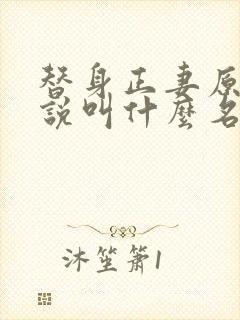 替身正妻原
說叫什麼名
沐笙簫1